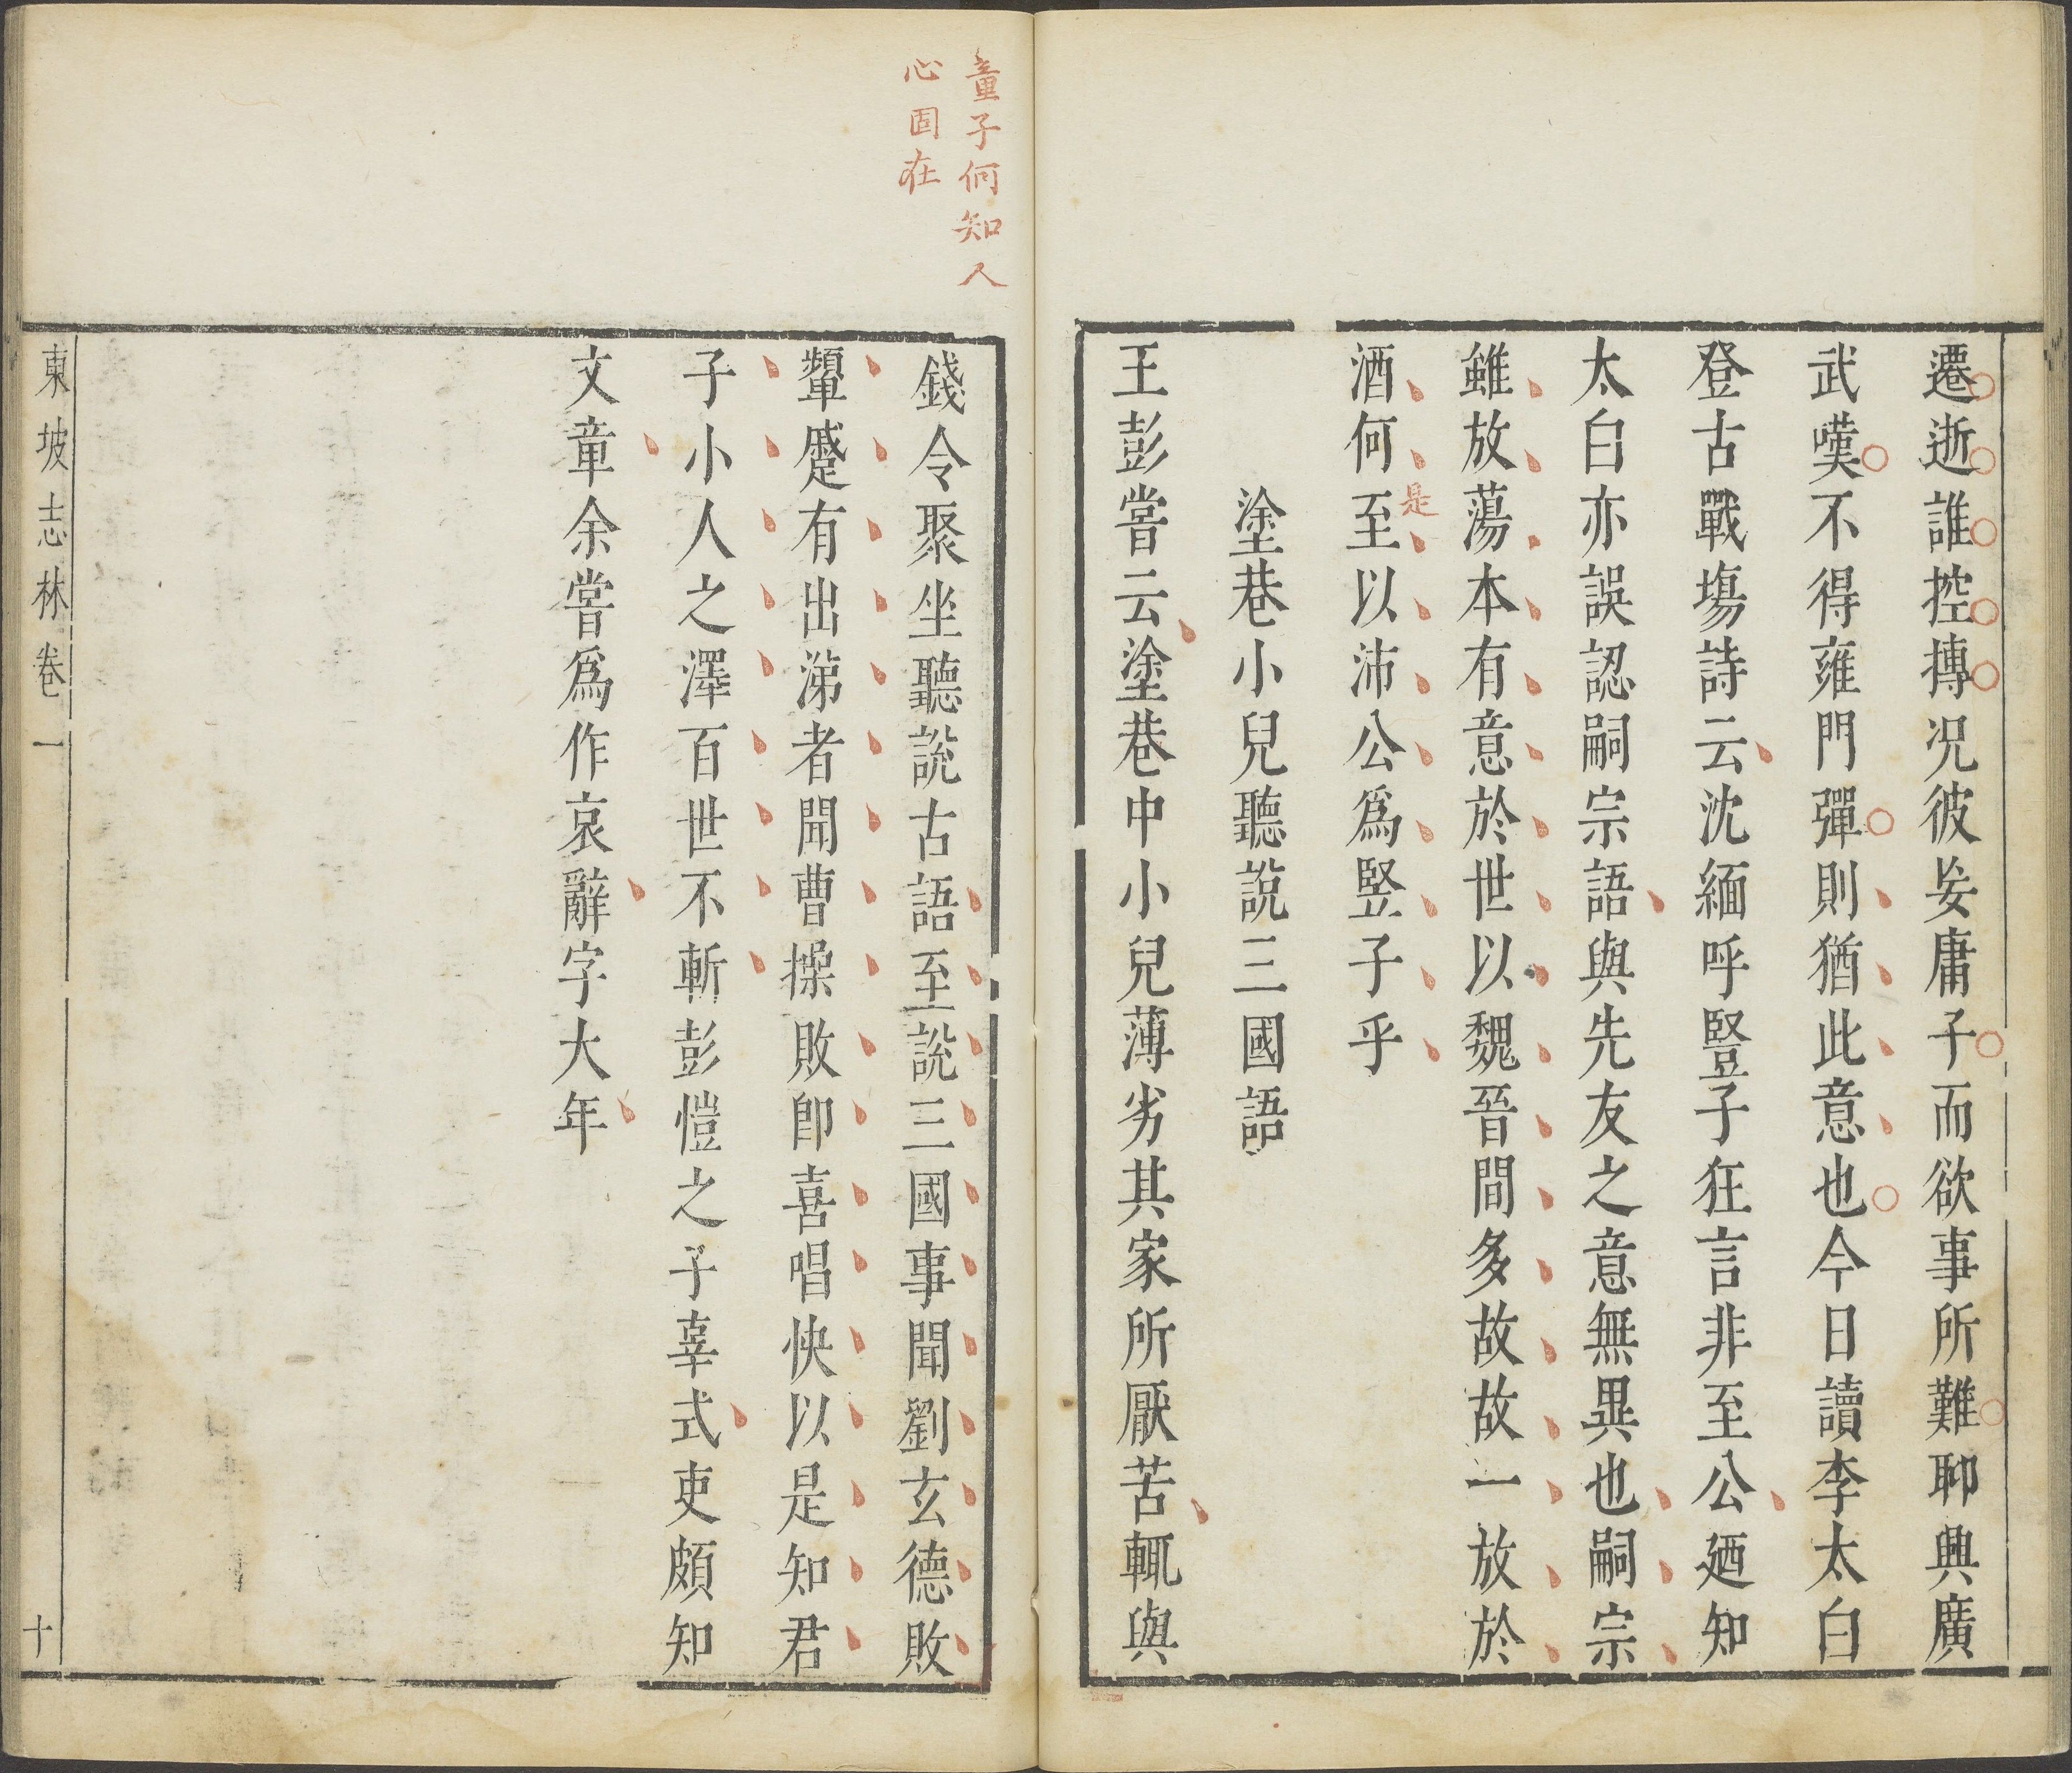 遷逝誰控摶况彼妄庸子而欲事所難聊興廣
武嘆不得雍門彈則猶此意也今日讀李太白
登古戰塲詩云沈緬呼豎子狂言非至公廼知
太白亦誤認嗣宗語與先友之意無異也嗣宗
雖放蕩本有意於世以魏晉間多故故一放於
酒何至以沛公爲竪子乎
是
塗巷小兒聽說三國語
王彭嘗云塗巷中小兒薄劣其家所厭苦輒與
童子何知人
心固在
錢令聚坐聽說古語至說三國事聞劉玄德敗
顰蹙有出涕者聞曹操敗卽喜唱快以是知君
子小人之澤百世不斬彭愷之子辜式吏頗知
文章余嘗爲作哀辭字大年
東坡志林卷一
十